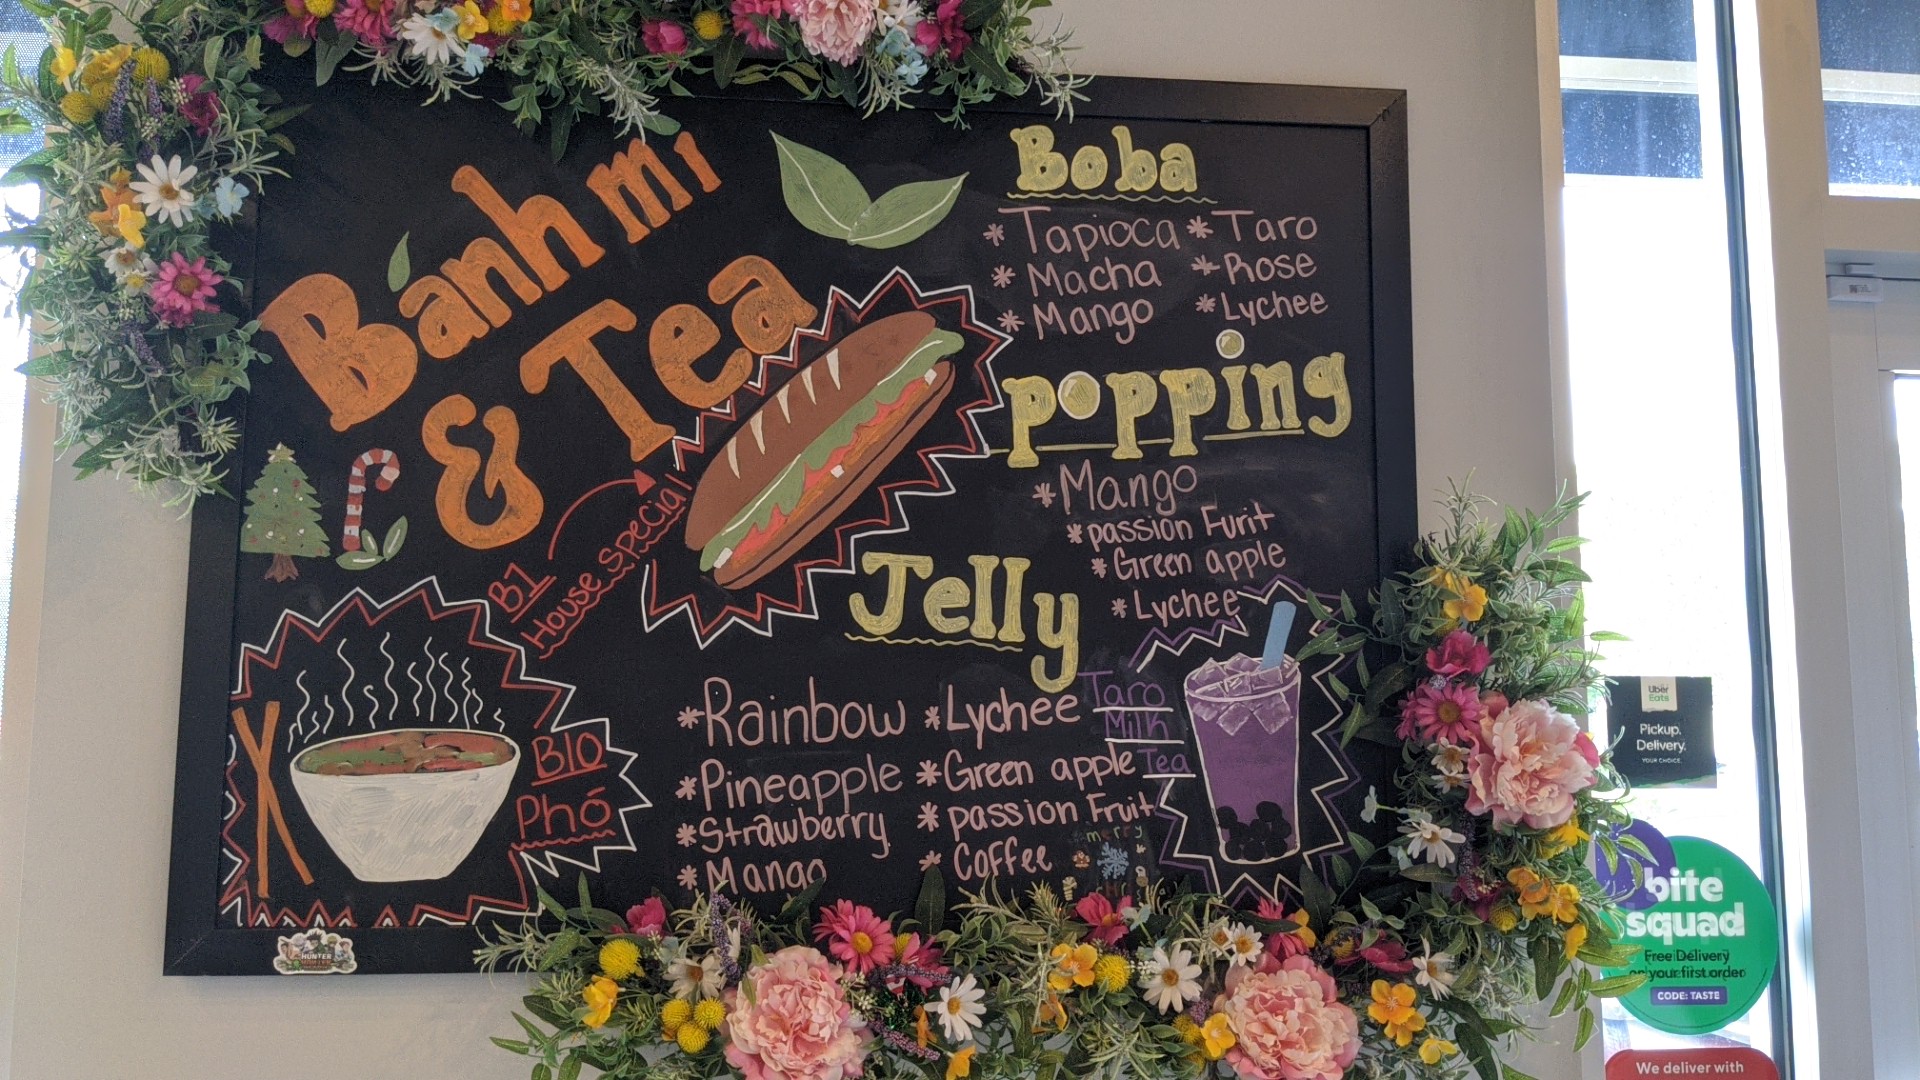 Bánh mì
& Tea
B1
House Special
B10
Phó
Boba
* Tapioca * Taro
* Macha * Rose
* Mango * Lychee
popping
* Mango
* passion Furit
* Green apple
* Lychee
Jelly
* Rainbow * Lychee
* Pineapple * Green apple
* Strawberry * passion Fruit
* Mango * Coffee
Taro
Milk
Tea
merry
HUNTER
Uber
Eats
Pickup.
Delivery.
YOUR CHOICE.
bite
squad
Free Delivery
on your first order
CODE: TASTE
We deliver with